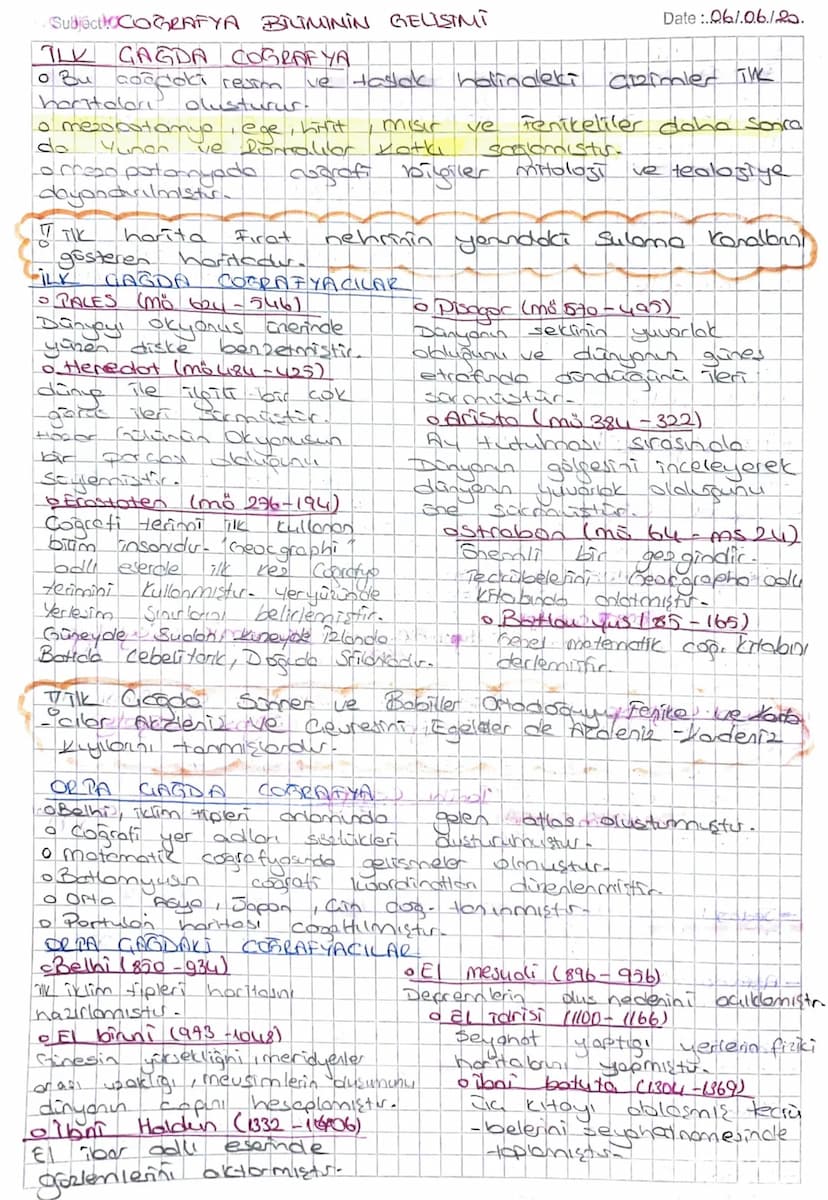 Subject: COĞRAFYA BİLİMİNİN GELİŞİMİ
Date : 06/.06/20.
İLK ÇAĞDA COĞRAFYA
o Bu çağdaki resim ve taslak halindeki çizimler ilk
haritaları oluşturur.
o mezopotamya, ege, hitit, mısır ve Fenikeliler daha sonra
da Yunan ve Romalılar katkı sağlamıştır.
o mezopotamyada coğrafi bilgiler mitoloji ve teolojiye
dayandırılmıştır.
İlk harita Fırat nehrinin yanındaki Sulama Kanallarını
gösteren haritadır.
İLK ÇAĞDA COĞRAFYACILAR
o TALES (mö 624-546)
Dünyayı okyanus üzerinde
yüzen diske benzetmiştir.
o Heredot (mö 484-425)
dünya ile ilgili bir çok
görüş ileri sürmüştür.
Hazar Gölünün Okyanusun
bir parçası olduğunu
söylemiştir.
o Erastoten (mö 296-194)
Coğrafi terimi ilk kullanan
bilim insanıdır. "Geocgraphi"
adlı eserde ilk kez Coğrafya
terimini kullanmıştır. Yeryüzünde
Yerleşim Sınırlarını belirlemiştir.
Güneyde Sudan, kuzeyde İzlanda
Batıda Cebelitarık, Doğuda
o Pisagor (mö 570-495)
Dünyanın şeklinin yuvarlak
olduğunu ve dünyanın güneş
etrafında döndüğünü ileri
sürmüştür.
o Aristo (mö 384-322)
Ay tutulması sırasında
Dünyanın gölgesini inceleyerek
dünyanın yuvarlak olduğunu
öne sürmüştür.
o Strabon (mö 64 - ms 24)
Önemli bir gezgindir.
Tecrübelerini Geographa adlı
kitabında anlatmıştır.
o Batlamyus (85-165)
Genel matematik coğ. kitabını
derlemiştir.
İlk Çağda Sümer ve Babiller Ortadoğuyu, Fenike ve Karta
-calılar Akdeniz ve Çevresini, Egeliler de Akdeniz -Karadeniz
kıyılarını tanımışlardır.
ORTA ÇAĞDA COĞRAFYA
o Belhi, iklim tipleri ortamında gelen atlas oluşturmuştur.
o Coğrafi yer adları sözlükleri oluşturulmuştur.
o matematik coğrafyasında gelişmeler olmuştur.
o Batlamyusun coğrafi koordinatları düzenlenmiştir.
o Orta Asya, Japon, Çin coğ. tanınmıştır.
o Portulan haritası çoğaltılmıştır.
ORTA ÇAĞDAKİ COĞRAFYACILAR
o Belhi (850-934)
ilk iklim tipleri haritasını
hazırlamıştır.
o El biruni (993-1048)
Güneşin yüksekliğini, meridyenler
arası uzaklığı, mevsimlerin oluşumunu
dünyanın çapını hesaplamıştır.
o İbni Haldun (1332-1406)
El ibar adlı eserinde
gözlemlerini aktarmıştır.
o El mesudi (896-956)
Depremlerin oluş nedenini açıklamıştır.
o El idrisi (1100-1166)
Seyahat yaptığı yerlerin fiziki
haritalarını yapmıştır.
o ibni batuta (1304-1369)
Üç kıtayı dolaşmış tecrü
-belerini Seyahatnamesinde
-toplamıştır.